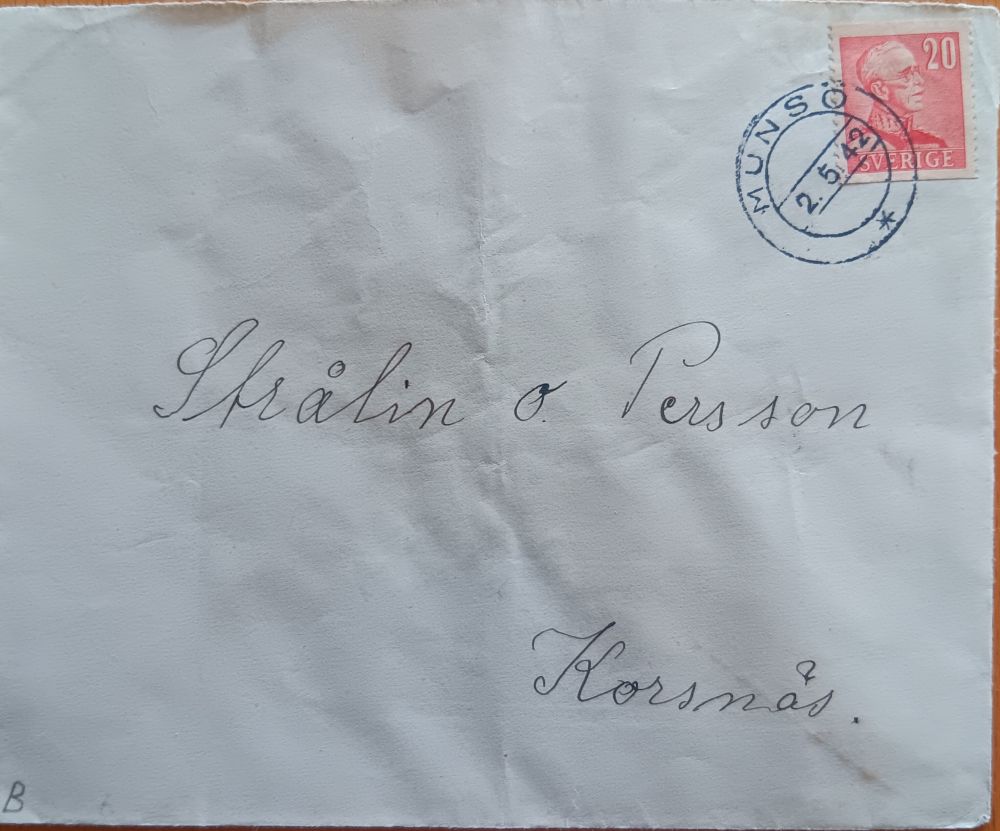 20
SVERIGE
MUNSÖ
2.5.42
*
Strålin o. Persson
Korsnäs.
B